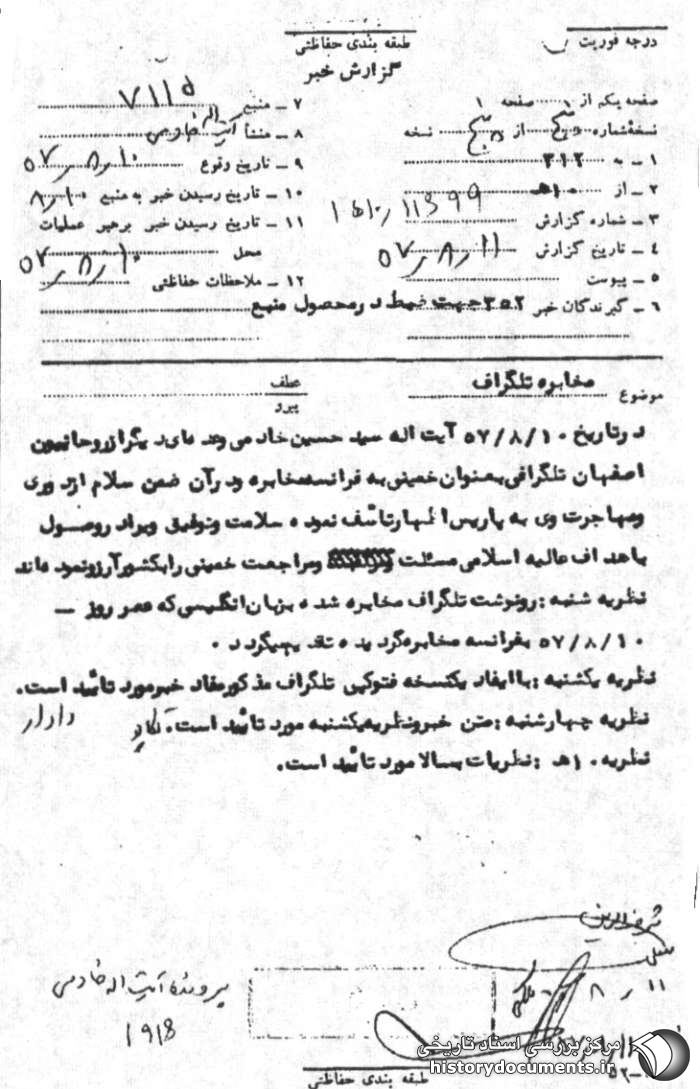 درجه فوریت
طبقه بندی حفاظتی
گزارش خبر
صفحه یکم از ۱ صفحه ۱
نسخه شماره پنج از پنج نسخه
۱ ـ به ۳۱۲
۲ ـ از ۱۰هـ
۳ ـ شماره گزارش
۴ ـ تاریخ گزارش ۵۷٫۸٫۱۱
۵ ـ پیوست
۶ ـ گیرندگان خبر ۳۵۲ جهت ضبط در محصول منبع
۷ ـ منبع
۸ ـ منشأ آیت اله خادمی
۹ ـ تاریخ وقوع ۵۷٫۸٫۱۰
۱۰ ـ تاریخ رسیدن خبر به منبع ۸٫۱۰
۱۱ ـ تاریخ رسیدن خبر برهبر عملیات
محل ۵۷٫۸٫۱۰
۱۲ ـ ملاحظات حفاظتی
موضوع مخابره تلگراف
عطف
پیرو
درتاریخ ۵۷/۸/۱۰ آیت اله سید حسین خادمی وعده ای دیگر از روحانیون
اصفهان تلگرافی بعنوان خمینی به فرانسه مخابره ودر آن ضمن سلام از دوری
ومهاجرت وی به پاریس اظهار تأسف نموده سلامت وتوفیق ویرا در وصول
باهداف عالیه اسلامی مسئلت ومراجعت خمینی را بکشور آرزو نموده اند
نظریه شنبه : رونوشت تلگراف مخابره شده بزبان انگلیسی که عصر روز ـ
۵۷/۸/۱۰ بفرانسه مخابره گردیده تقدیم میگردد .
نظریه یکشنبه : با ایفاد یکنسخه فتوکپی تلگراف مذکور مفاد خبر مورد تائید است.
نظریه چهارشنبه : متن خبر ونظریه یکشنبه مورد تائید است.
نظریه ۱۰هـ : نظریات بالا مورد تائید است.
۸٫۱۱
پرونده آیت اله خادمی
طبقه بندی حفاظتی
مرکز بررسی اسناد تاریخی
historydocuments.ir